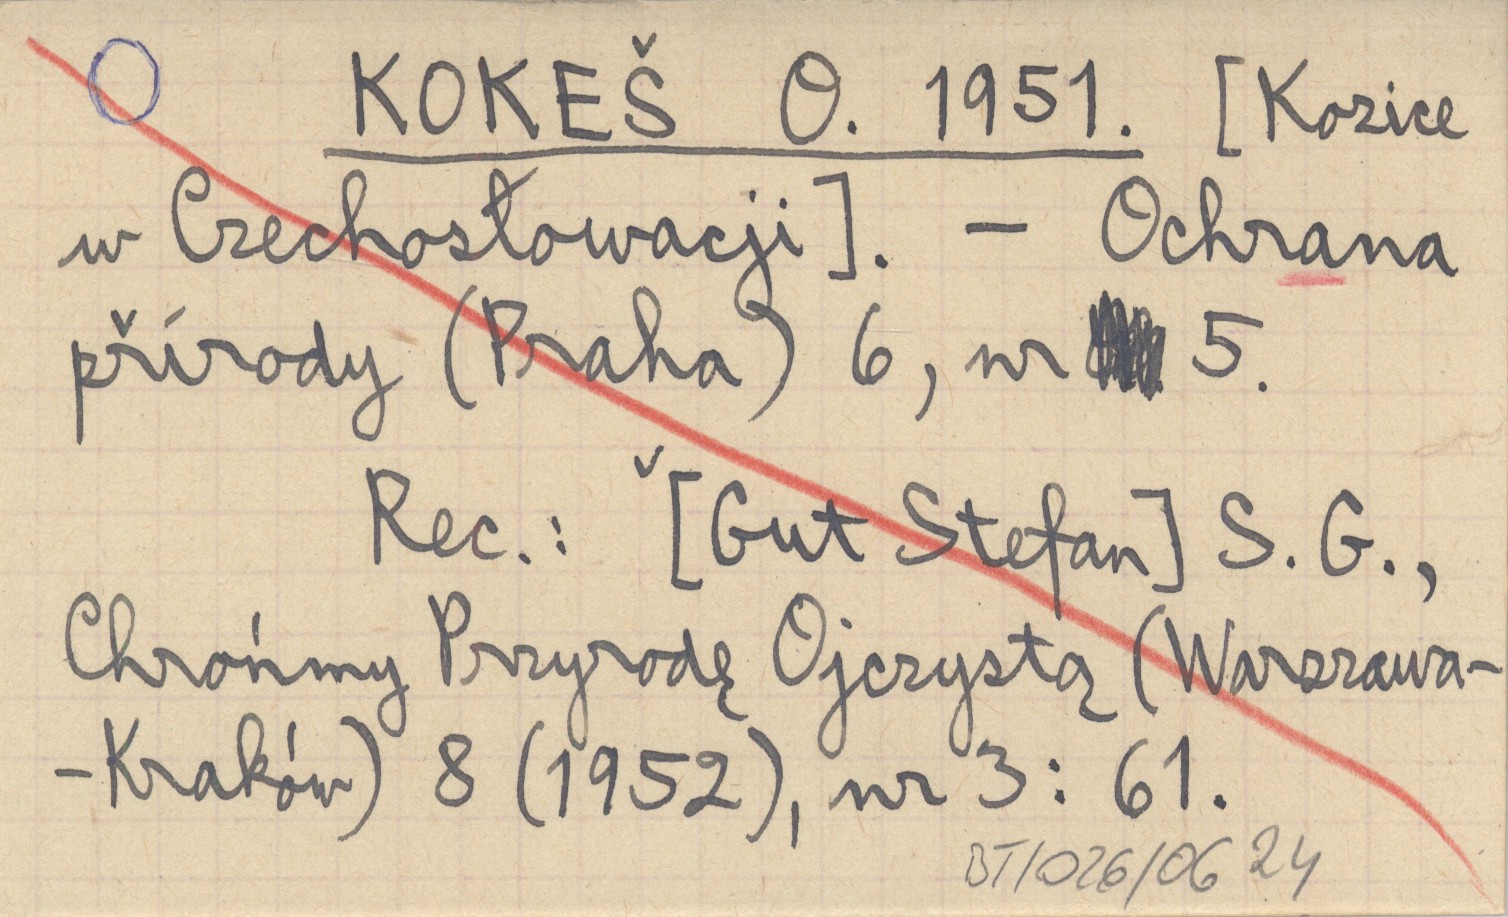 KOKEŠ O. 1951. [Kozice
w Czechosłowacji]. - Ochrana
přírody (Praha) 6, nr 5.
Rec.: [Gut Stefan] S. G.,
Chrońmy Przyrodę Ojczystą (Warszawa-
-Kraków) 8 (1952), nr 3: 61.
BT/026/06 24